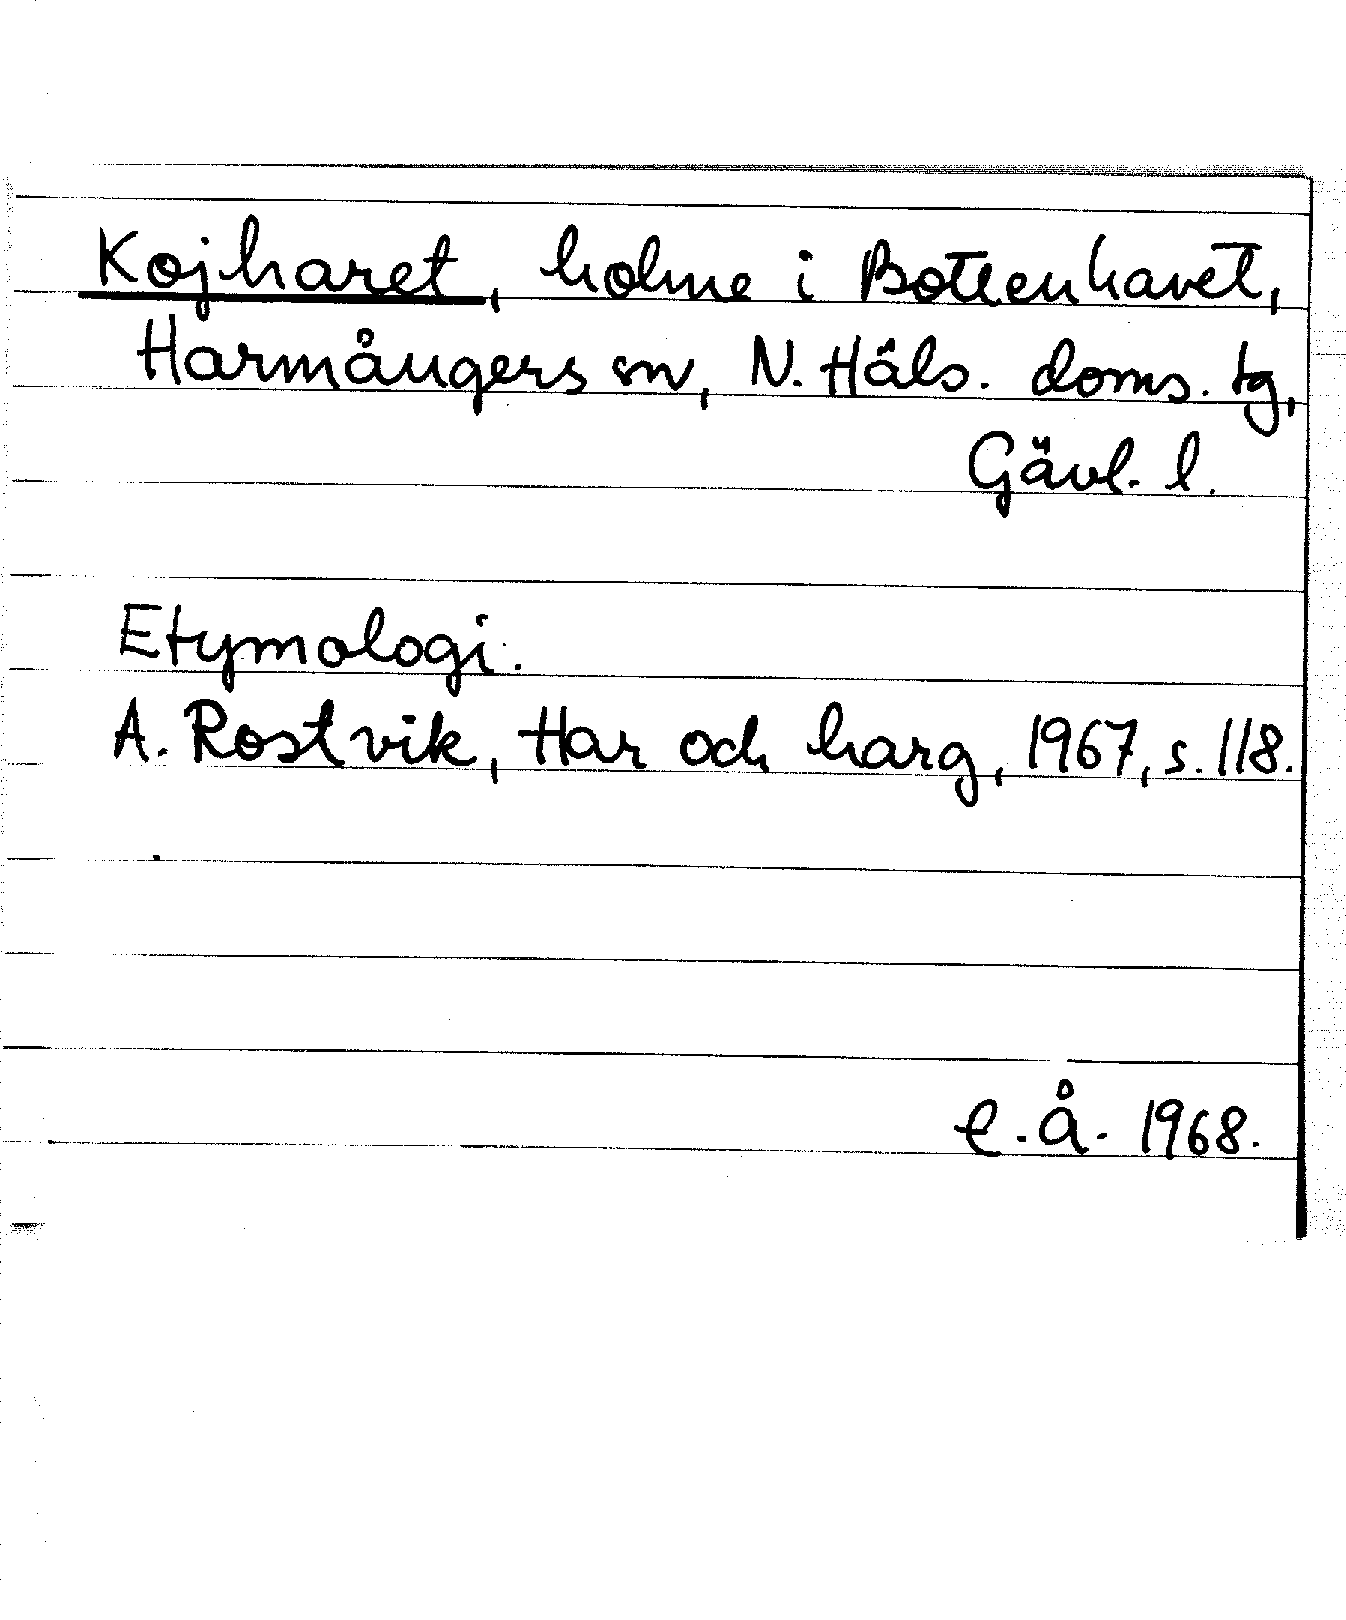 Kojharet, holme i Bottenhavet,
Harmångers sn, N. Häls. doms. tg,
Gävl. l.
Etymologi.
A. Rostvik, Har och harg, 1967, s. 118.
E. Å. 1968.